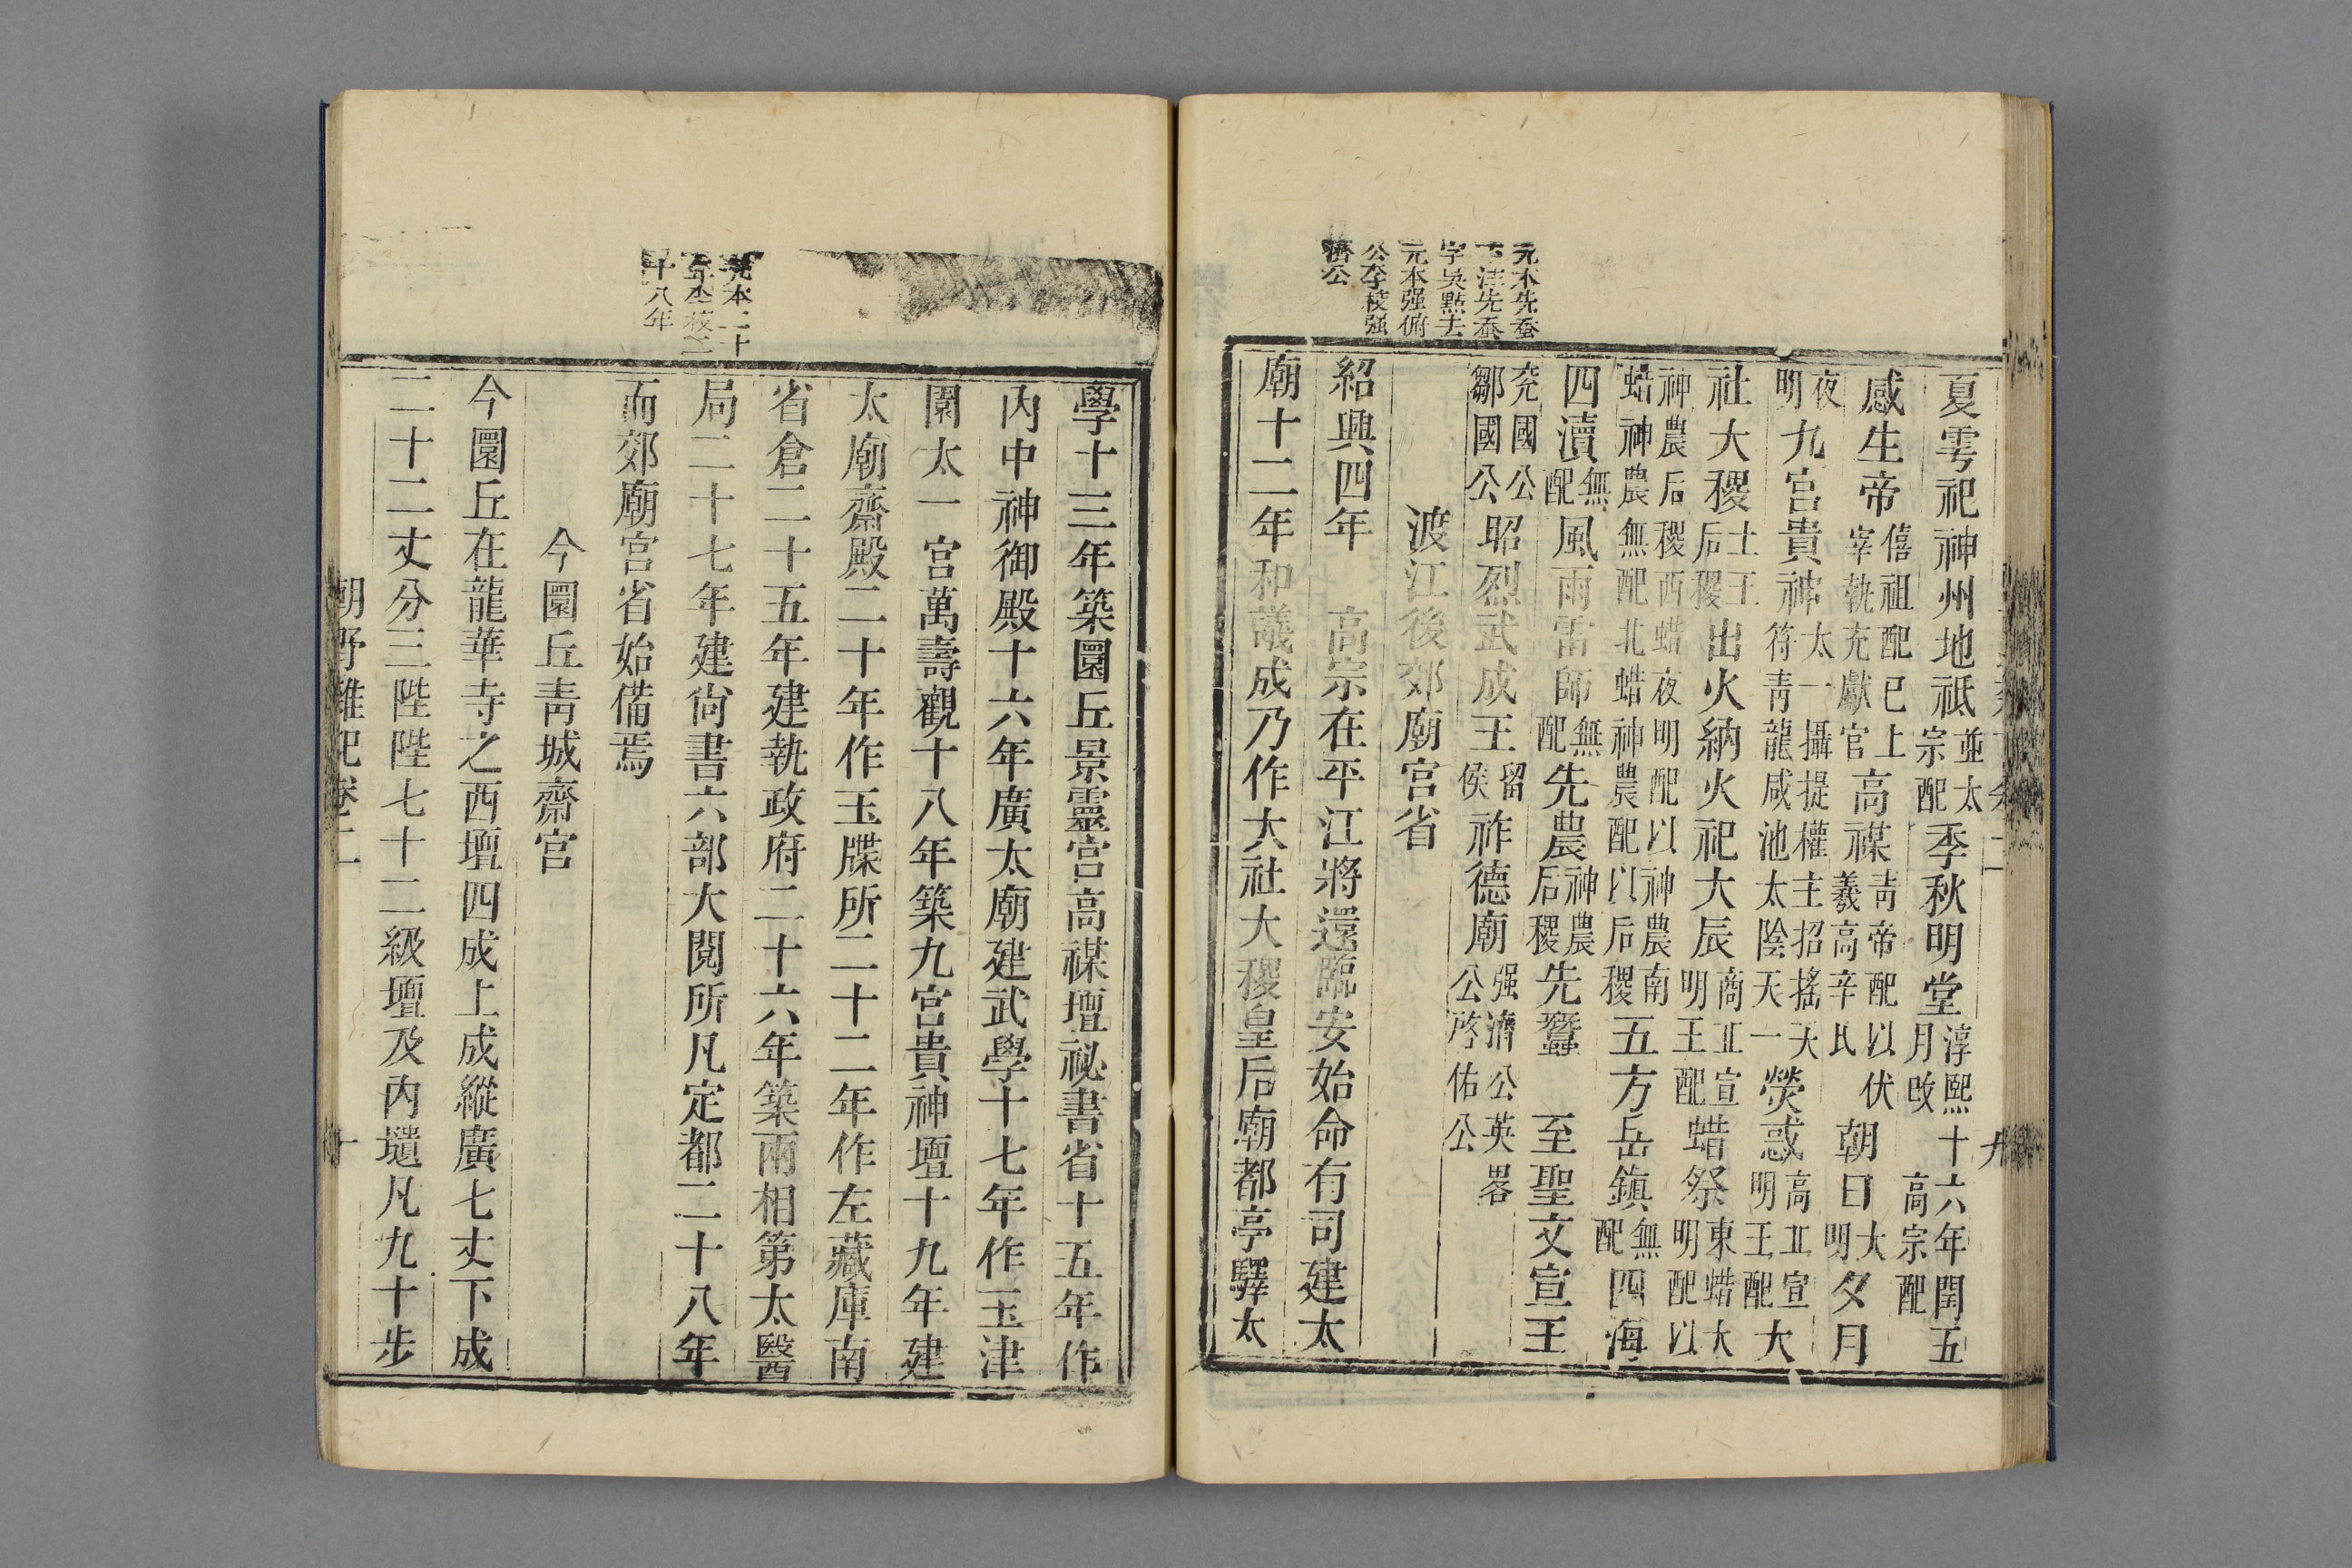 元本先蚕
下注先蚕
字吳點去
元本强俯
公李校强
濟公
夏雩祀神州地祇並太宗配季秋明堂淳熙十六年閏五月改高宗配
感生帝僖祖配已上宰執充獻官高禖青帝配以伏羲高辛氏朝日大明夕月
夜明九宮貴神太一攝提權主招搖天符青龍咸池太陰天一熒惑高正宣明王配大
社大稷土王后稷出火納火祀大辰商正宣明王配蜡祭東蜡大明配以
神農后稷西蜡夜明配以神農南蜡神農無配北蜡神農配以后稷五方岳鎮無配四海
四瀆無配風雨雷師無配先農神農后稷先蠶 至聖文宣王
兖國公鄒國公昭烈武成王留侯祚德廟强濟公英畧公啓佑公
渡江後郊廟宮省
紹興四年 高宗在平江將還臨安始命有司建太
廟十二年和議成乃作大社大稷皇后廟都亭驛太
元本二十
年李校二
十八年
學十三年築圜丘景靈宮高禖壇祕書省十五年作
內中神御殿十六年廣太廟建武學十七年作玉津
園太一宮萬壽觀十八年築九宮貴神壇十九年建
太廟齋殿二十年作玉牒所二十二年作左藏庫南
省倉二十五年建執政府二十六年築兩相第太醫
局二十七年建尙書六部大閱所凡定都二十八年
而郊廟宮省始備焉
今圜丘靑城齋宮
今圜丘在龍華寺之西壇四成上成縱廣七丈下成
二十二丈分三陛陛七十二級壇及內壝凡九十步
朝野雜記卷二 十